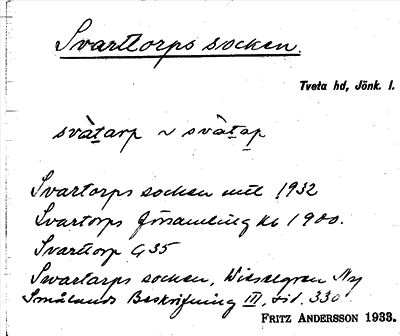 Svarttorps socken.
Tveta hd, Jönk. l.
svàtarp ~ svàtap
Svartorps socken mtl 1932
Svartorps församling kb 1900.
Svarttorp G35
Swartorps socken, Wieselgren Ny
Smålands Beskrifning III, sid. 330.
FRITZ ANDERSSON 1933.